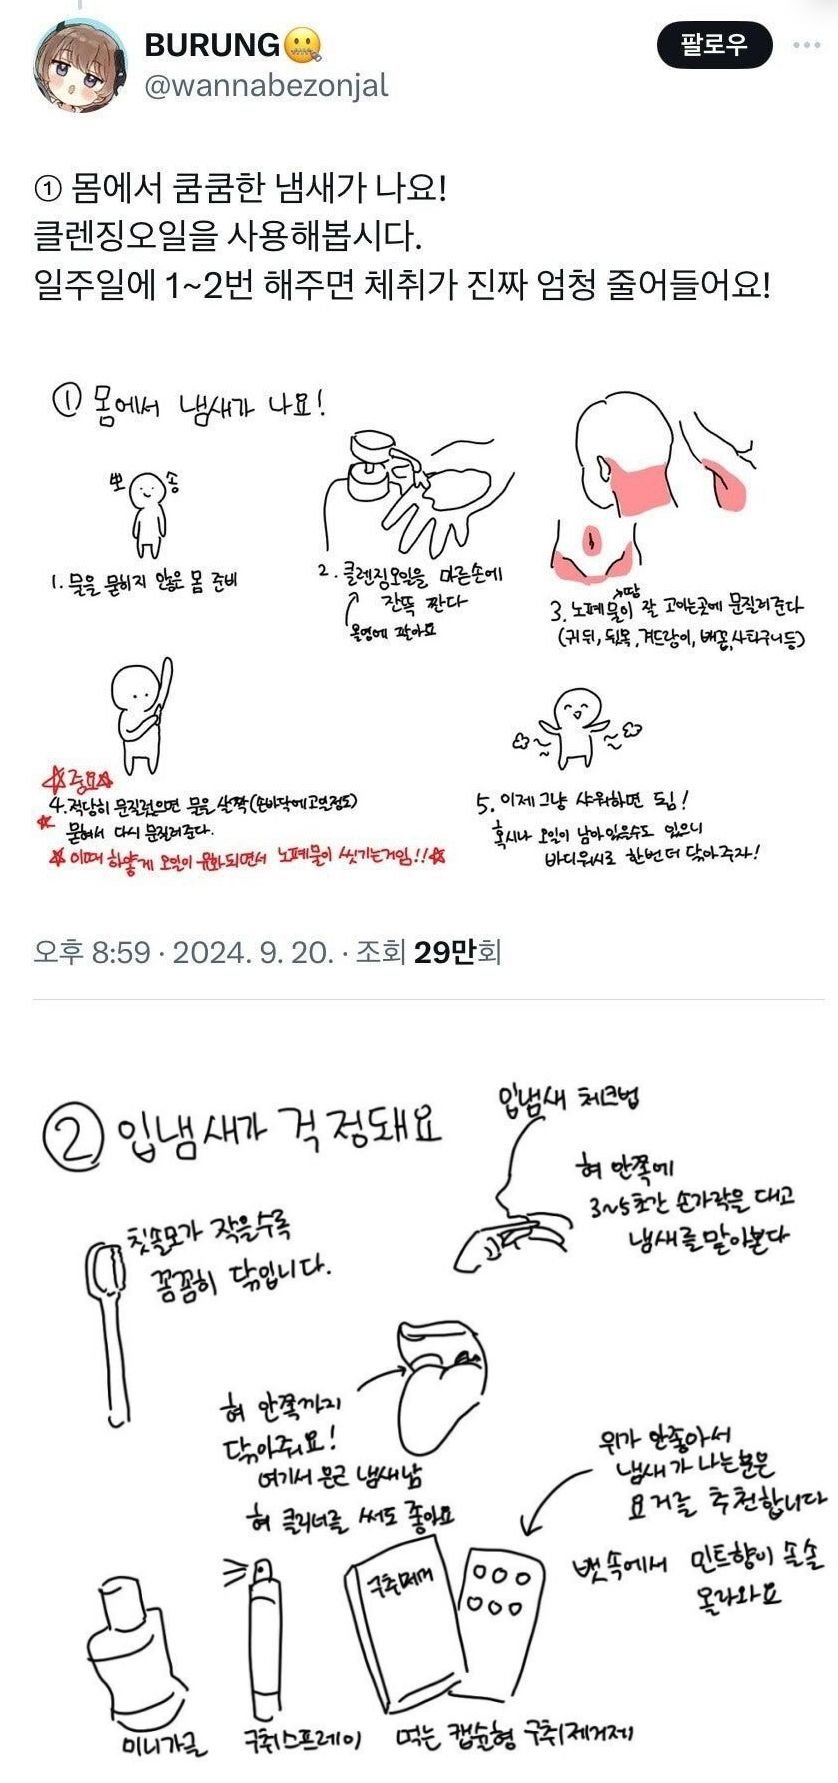 BURUNG🤐
@wannabezonjal
팔로우
① 몸에서 쿰쿰한 냄새가 나요!
클렌징오일을 사용해봅시다.
일주일에 1~2번 해주면 체취가 진짜 엄청 줄어들어요!
① 몸에서 냄새가 나요!
뽀송
1. 물을 묻히지 않은 몸 준비
2. 클렌징오일을 마른손에
잔뜩 짠다
올영에 많아요
3. 노폐물이 잘 고이는곳에 문질러준다
→땀
(귀 뒤, 뒷목, 겨드랑이, 배꼽, 사타구니 등)
☆중요☆
4. 적당히 문질렀으면 물을 살짝 (손바닥에 고일정도)
묻혀서 다시 문질러준다.
☆이때 하얗게 오일이 유화되면서 노폐물이 씻기는거임!!☆
5. 이제 그냥 샤워하면 됨!
혹시나 오일이 남아있을수도 있으니
바디워시로 한번 더 닦아주자!
오후 8:59 · 2024. 9. 20. · 조회 29만회
② 입냄새가 걱정돼요
입냄새 체크법
혀 안쪽에
3~5초간 손가락을 대고
냄새를 맡아본다
칫솔모가 작을수록
꼼꼼히 닦입니다.
혀 안쪽까지
닦아줘요!
여기서 은근 냄새남
혀 클리너를 써도 좋아요
위가 안좋아서
냄새가 나는분은
요거를 추천합니다
뱃속에서 민트향이 솔솔
올라와요
구취제거
미니가글
구취스프레이
먹는 캡슐형 구취제거제